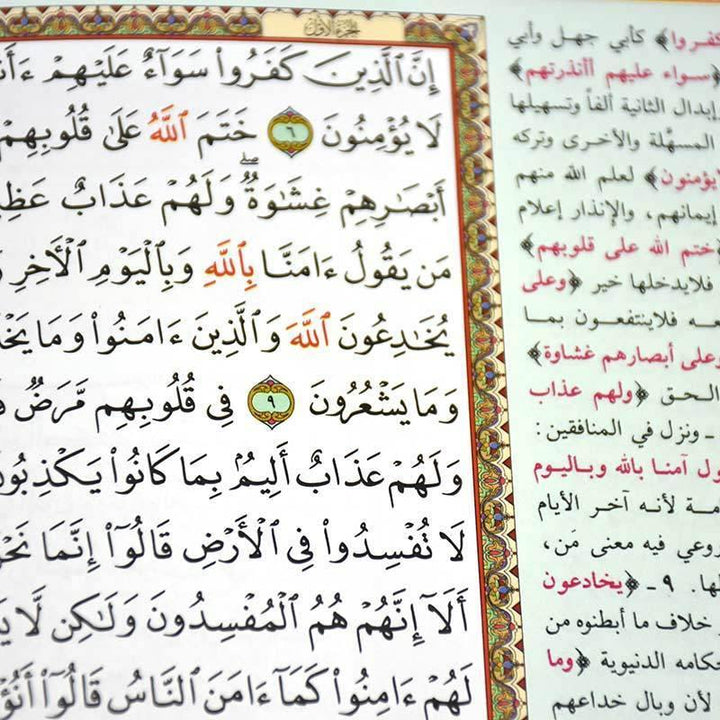 الجزء الأول
إِنَّ ٱلَّذِينَ كَفَرُوا۟ سَوَآءٌ عَلَيْهِمْ
لَا يُؤْمِنُونَ ٦ خَتَمَ ٱللَّهُ عَلَىٰ قُلُوبِهِمْ
أَبْصَـٰرِهِمْ غِشَـٰوَةٌۖ وَلَهُمْ عَذَابٌ
مَن يَقُولُ ءَامَنَّا بِٱللَّهِ وَبِٱلْيَوْمِ ٱلْأَخِرِ
يُخَـٰدِعُونَ ٱللَّهَ وَٱلَّذِينَ ءَامَنُوا۟ وَمَا
وَمَا يَشْعُرُونَ ٩ فِى قُلُوبِهِم مَّرَضٌ
وَلَهُمْ عَذَابٌ أَلِيمٌۢ بِمَا كَانُوا۟
لَا تُفْسِدُوا۟ فِى ٱلْأَرْضِ قَالُوٓا۟ إِنَّمَا
أَلَآ إِنَّهُمْ هُمُ ٱلْمُفْسِدُونَ وَلَـٰكِن لَّا
لَهُمْ ءَامِنُوا۟ كَمَآ ءَامَنَ ٱلنَّاسُ قَالُوٓا۟
كفروا﴾ كأبي جهل وأبي
﴿سواء عليهم أأنذرتهم﴾
إبدال الثانية ألفاً وتسهيلها
المسهّلة والأخرى وتركه
لا يؤمنون﴾ لعلم الله منهم
إيمانهم، والإنذار إعلام
﴿ختم الله على قلوبهم﴾
فلا يدخلها خير ﴿وعلى
فلا ينتفعون بما
وعلى أبصارهم غشاوة﴾
الحق ﴿ولهم عذاب
- ونزل في المنافقين:
آمنا بالله وباليوم
لأنه آخر الأيام
روعي فيه معنى مَن،
٩ - ﴿يخادعون
خلاف ما أبطنوه من
الدنيوية ﴿وما
لأن وبال خداعهم